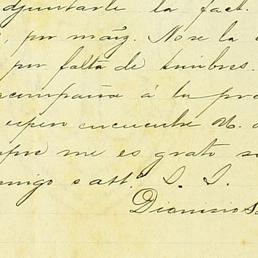 adjuntarle la fact.
, por maiz. No se la
por falta de timbres.
acompaña á la pre
espero encuentre V.
pre me es grato
amigo s att. S. S.
Dionisio